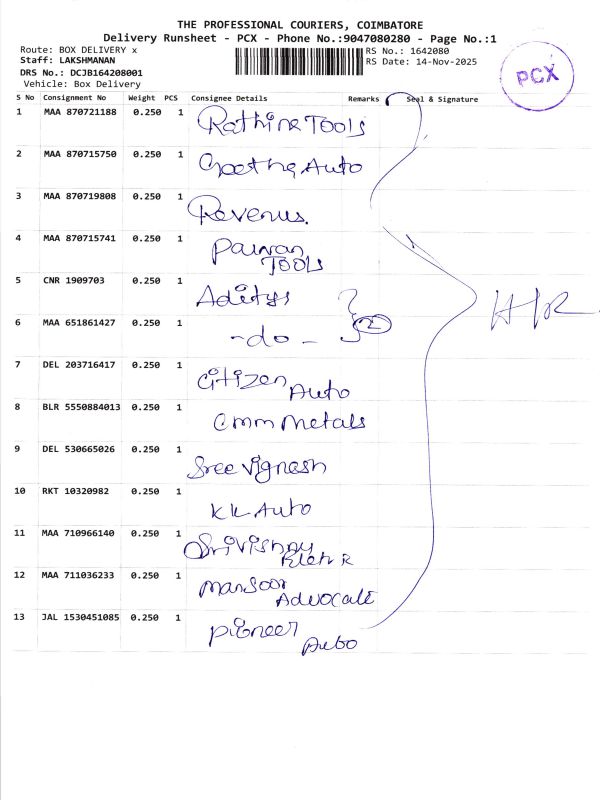 THE PROFESSIONAL COURIERS, COIMBATORE
Delivery Runsheet - PCX - Phone No.:9047080280 - Page No.:1
Route: BOX DELIVERY x
RS No.: 1642080
Staff: LAKSHMANAN
RS Date: 14-Nov-2025
DRS No.: DCJB164208001
Vehicle: Box Delivery
PCX
S No Consignment No Weight PCS Consignee Details Remarks Seal & Signature
1 MAA 870721188 0.250 1 Rathina Tools
2 MAA 870715750 0.250 1 Geetha Auto
3 MAA 870719808 0.250 1 Revenus.
4 MAA 870715741 0.250 1 Pawan
Tools
5 CNR 1909703 0.250 1 Aditys
6 MAA 651861427 0.250 1 -do- 2
H/R
7 DEL 203716417 0.250 1 Citizen Auto
8 BLR 5550884013 0.250 1 Cmm Metals
9 DEL 530665026 0.250 1 Sree Vignesh
10 RKT 10320982 0.250 1 KK Auto
11 MAA 710966140 0.250 1 Sri Vishnu
12 MAA 711036233 0.250 1 Mansoor
Advocate
13 JAL 1530451085 0.250 1 Pioneer
Auto